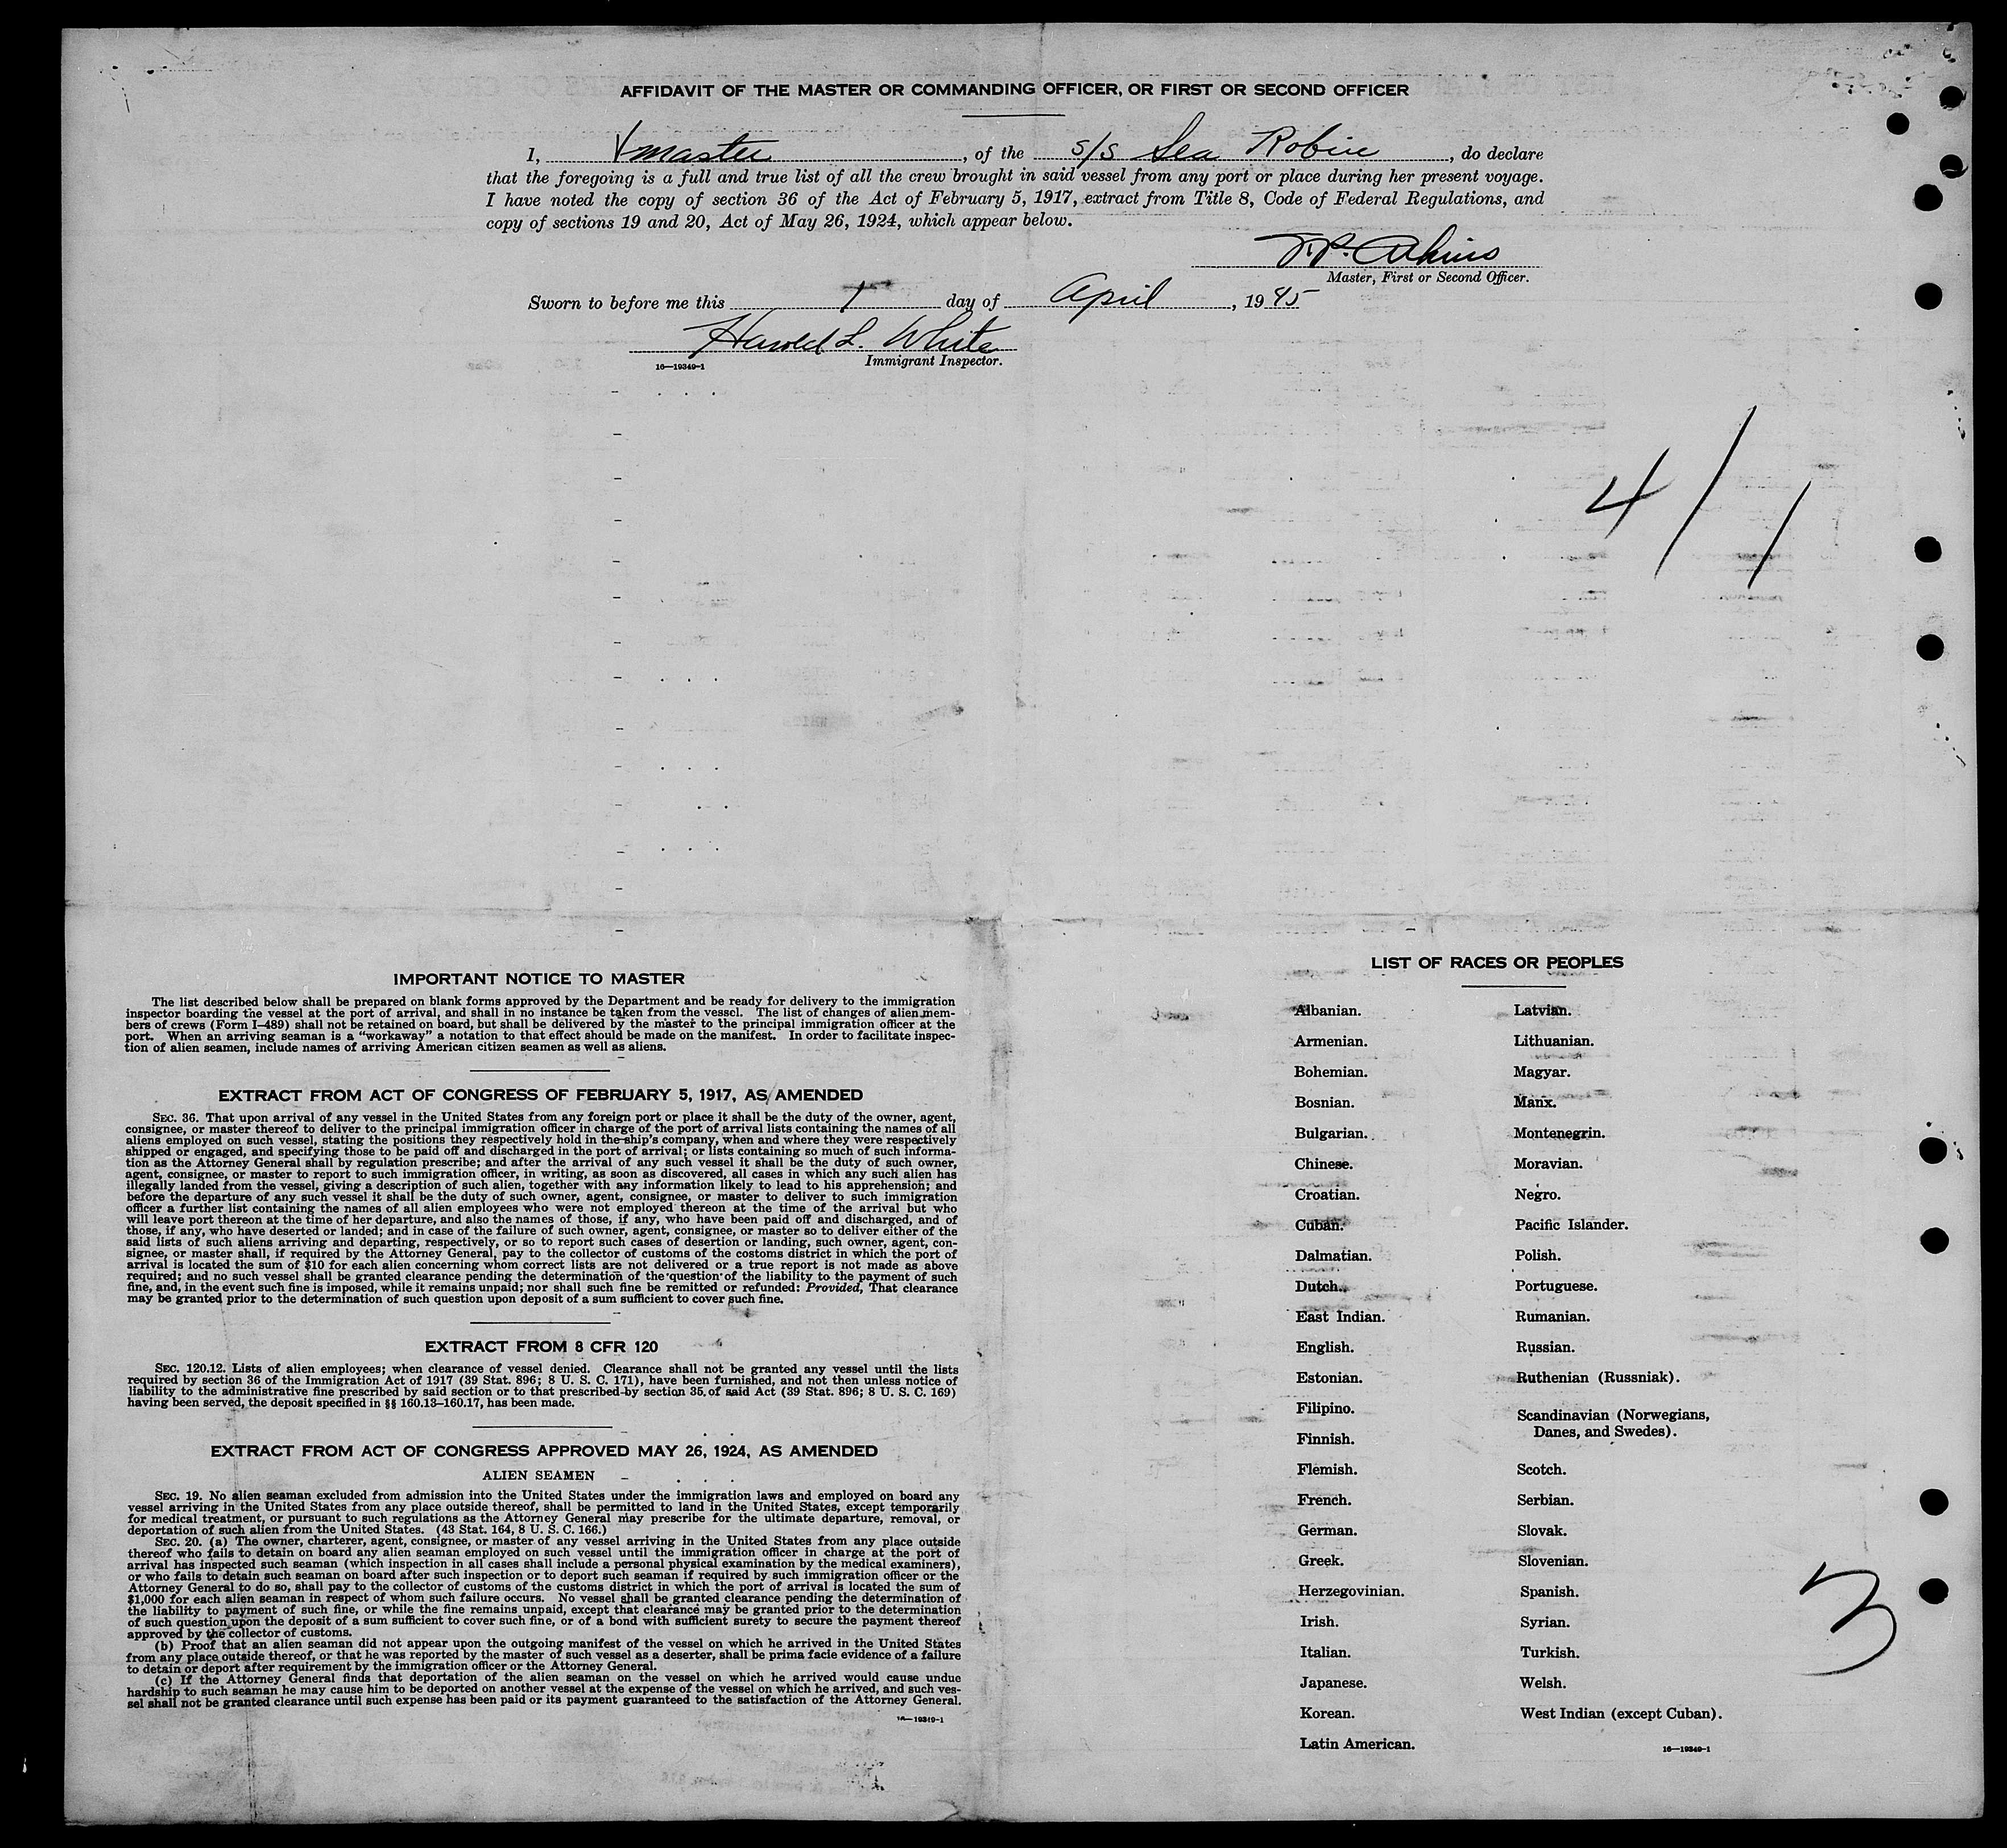 AFFIDAVIT OF THE MASTER OR COMMANDING OFFICER, OR FIRST OR SECOND OFFICER
I, Master, of the S/S Sea Robin, do declare
that the foregoing is a full and true list of all the crew brought in said vessel from any port or place during her present voyage.
I have noted the copy of section 36 of the Act of February 5, 1917, extract from Title 8, Code of Federal Regulations, and
copy of sections 19 and 20, Act of May 26, 1924, which appear below.
Master, First or Second Officer.
Sworn to before me this 1 day of April, 1945
Harold L. White
16—19349-1 Immigrant Inspector.
4/1
IMPORTANT NOTICE TO MASTER
The list described below shall be prepared on blank forms approved by the Department and be ready for delivery to the immigration
inspector boarding the vessel at the port of arrival, and shall in no instance be taken from the vessel. The list of changes of alien mem-
bers of crews (Form I–489) shall not be retained on board, but shall be delivered by the master to the principal immigration officer at the
port. When an arriving seaman is a "workaway" a notation to that effect should be made on the manifest. In order to facilitate inspec-
tion of alien seamen, include names of arriving American citizen seamen as well as aliens.
EXTRACT FROM ACT OF CONGRESS OF FEBRUARY 5, 1917, AS AMENDED
SEC. 36. That upon arrival of any vessel in the United States from any foreign port or place it shall be the duty of the owner, agent,
consignee, or master thereof to deliver to the principal immigration officer in charge of the port of arrival lists containing the names of all
aliens employed on such vessel, stating the positions they respectively hold in the ship's company, when and where they were respectively
shipped or engaged, and specifying those to be paid off and discharged in the port of arrival; or lists containing so much of such informa-
tion as the Attorney General shall by regulation prescribe; and after the arrival of any such vessel it shall be the duty of such owner,
agent, consignee, or master to report to such immigration officer, in writing, as soon as discovered, all cases in which any such alien has
illegally landed from the vessel, giving a description of such alien, together with any information likely to lead to his apprehension; and
before the departure of any such vessel it shall be the duty of such owner, agent, consignee, or master to deliver to such immigration
officer a further list containing the names of all alien employees who were not employed thereon at the time of the arrival but who
will leave port thereon at the time of her departure, and also the names of those, if any, who have been paid off and discharged, and of
those, if any, who have deserted or landed; and in case of the failure of such owner, agent, consignee, or master so to deliver either of the
said lists of such aliens arriving and departing, respectively, or so to report such cases of desertion or landing, such owner, agent, con-
signee, or master shall, if required by the Attorney General, pay to the collector of customs of the costoms district in which the port of
arrival is located the sum of $10 for each alien concerning whom correct lists are not delivered or a true report is not made as above
required; and no such vessel shall be granted clearance pending the determination of the question of the liability to the payment of such
fine, and, in the event such fine is imposed, while it remains unpaid; nor shall such fine be remitted or refunded: Provided, That clearance
may be granted prior to the determination of such question upon deposit of a sum sufficient to cover such fine.
EXTRACT FROM 8 CFR 120
SEC. 120.12. Lists of alien employees; when clearance of vessel denied. Clearance shall not be granted any vessel until the lists
required by section 36 of the Immigration Act of 1917 (39 Stat. 896; 8 U. S. C. 171), have been furnished, and not then unless notice of
liability to the administrative fine prescribed by said section or to that prescribed by section 35 of said Act (39 Stat. 896; 8 U. S. C. 169)
having been served, the deposit specified in §§ 160.13–160.17, has been made.
EXTRACT FROM ACT OF CONGRESS APPROVED MAY 26, 1924, AS AMENDED
ALIEN SEAMEN
SEC. 19. No alien seaman excluded from admission into the United States under the immigration laws and employed on board any
vessel arriving in the United States from any place outside thereof, shall be permitted to land in the United States, except temporarily
for medical treatment, or pursuant to such regulations as the Attorney General may prescribe for the ultimate departure, removal, or
deportation of such alien from the United States. (43 Stat. 164, 8 U. S. C. 166.)
SEC. 20. (a) The owner, charterer, agent, consignee, or master of any vessel arriving in the United States from any place outside
thereof who fails to detain on board any alien seaman employed on such vessel until the immigration officer in charge at the port of
arrival has inspected such seaman (which inspection in all cases shall include a personal physical examination by the medical examiners),
or who fails to detain such seaman on board after such inspection or to deport such seaman if required by such immigration officer or the
Attorney General to do so, shall pay to the collector of customs of the customs district in which the port of arrival is located the sum of
$1,000 for each alien seaman in respect of whom such failure occurs. No vessel shall be granted clearance pending the determination of
the liability to payment of such fine, or while the fine remains unpaid, except that clearance may be granted prior to the determination
of such question upon the deposit of a sum sufficient to cover such fine, or of a bond with sufficient surety to secure the payment thereof
approved by the collector of customs.
(b) Proof that an alien seaman did not appear upon the outgoing manifest of the vessel on which he arrived in the United States
from any place outside thereof, or that he was reported by the master of such vessel as a deserter, shall be prima facie evidence of a failure
to detain or deport after requirement by the immigration officer or the Attorney General.
(c) If the Attorney General finds that deportation of the alien seaman on the vessel on which he arrived would cause undue
hardship to such seaman he may cause him to be deported on another vessel at the expense of the vessel on which he arrived, and such ves-
sel shall not be granted clearance until such expense has been paid or its payment guaranteed to the satisfaction of the Attorney General.
16—19349-1
LIST OF RACES OR PEOPLES
Albanian.
Armenian.
Bohemian.
Bosnian.
Bulgarian.
Chinese.
Croatian.
Cuban.
Dalmatian.
Dutch.
East Indian.
English.
Estonian.
Filipino.
Finnish.
Flemish.
French.
German.
Greek.
Herzegovinian.
Irish.
Italian.
Japanese.
Korean.
Latin American.
Latvian.
Lithuanian.
Magyar.
Manx.
Montenegrin.
Moravian.
Negro.
Pacific Islander.
Polish.
Portuguese.
Rumanian.
Russian.
Ruthenian (Russniak).
Scandinavian (Norwegians,
Danes, and Swedes).
Scotch.
Serbian.
Slovak.
Slovenian.
Spanish.
Syrian.
Turkish.
Welsh.
West Indian (except Cuban).
16—19349-1
3